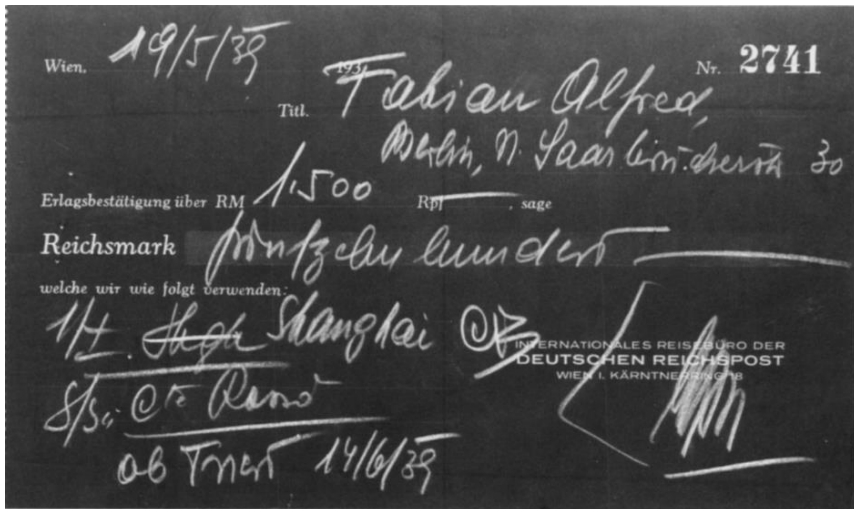 Wien. 19/5/39 193 Nr. 2741
Titl. Fabian Alfred,
Berlin, N. Saarbrückerstr 30
Erlagsbestätigung über RM 1.500 Rpf , sage
Reichsmark fünfzehnhundert
welche wir wie folgt verwenden:
1/I. Shgh Shanghai
INTERNATIONALES REISEBÜRO DER
DEUTSCHEN REICHSPOST
WIEN I. KÄRNTNERRING 18
S/S: Cte Rosso
ab Triest 14/6/39